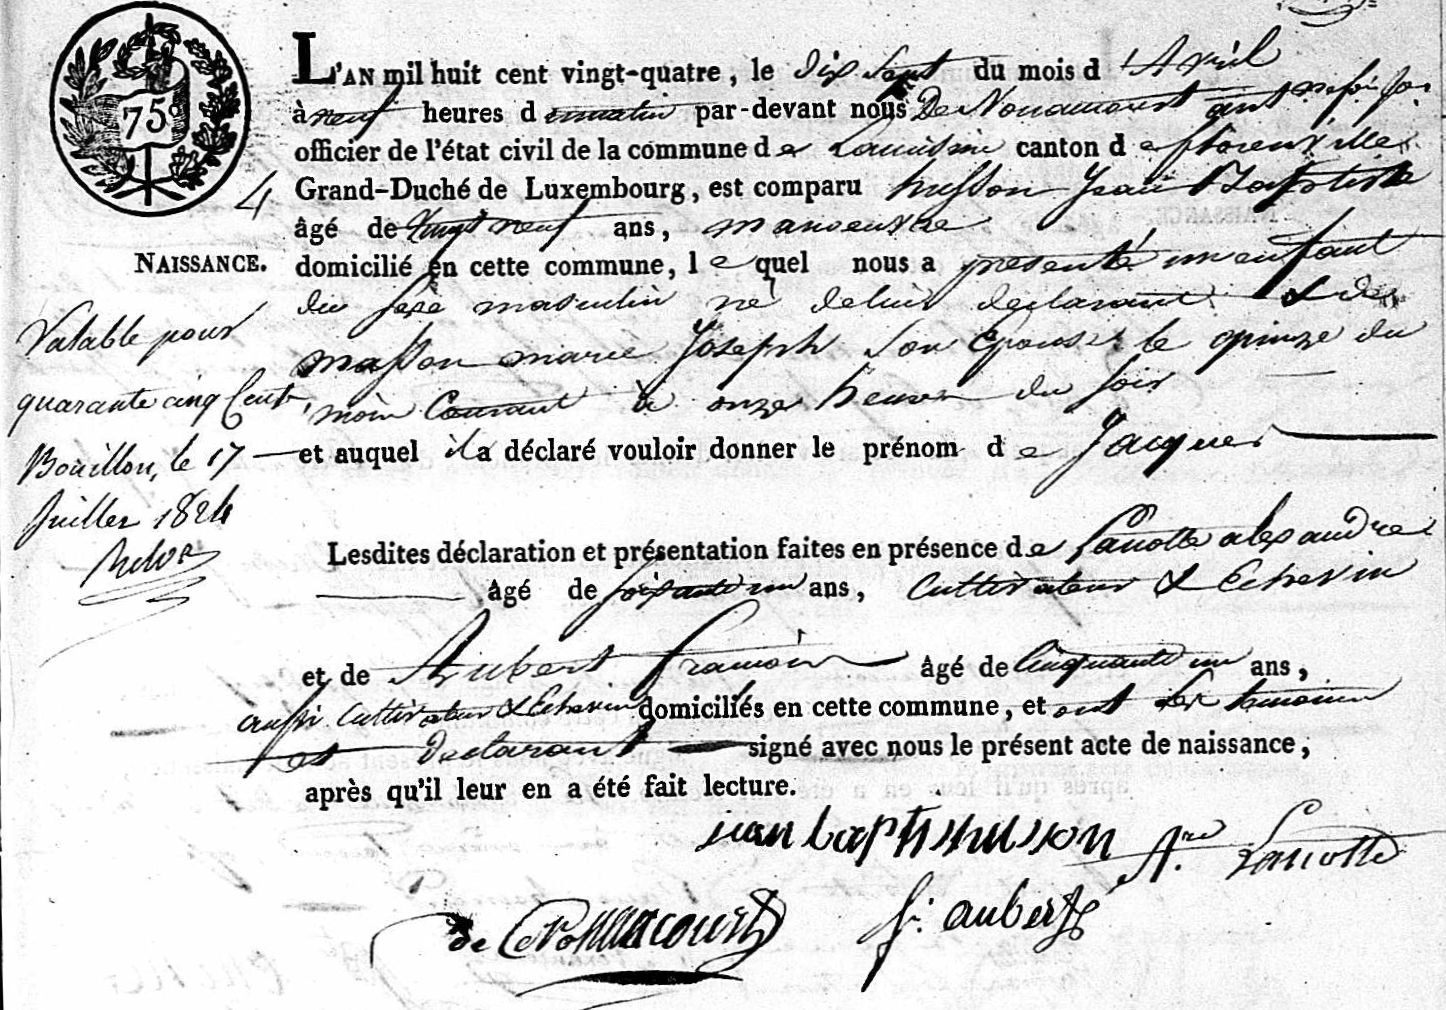 75
4
NAISSANCE.
Valable pour
quarante cinq Cent
Bouillon, le 17
Juillet 1824
L'AN mil huit cent vingt-quatre, le dix sept du mois d'Avril
à neuf heures du matin par-devant nous De
officier de l'état civil de la commune de canton de florenville
Grand-Duché de Luxembourg, est comparu husson Jean Baptiste
âgé de vingt neuf ans, manoeuvre
domicilié en cette commune, lequel nous a presenté un enfant
du sexe masculin né de lui declarant & de
masson marie Joseph son Epouse le quinze du
mois Courant à onze heures du soir
et auquel il a déclaré vouloir donner le prénom de Jacques
Lesdites déclaration et présentation faites en présence de Lanotte alexandre
âgé de soixante un ans, Cultivateur & Echevin
et de Aubert françois âgé de Cinquante un ans,
aussi Cultivateur & Echevin domiciliés en cette commune, et ont les temoins
et declarant signé avec nous le présent acte de naissance,
après qu'il leur en a été fait lecture.
jean baptis husson
Are Lanotte
f. aubert